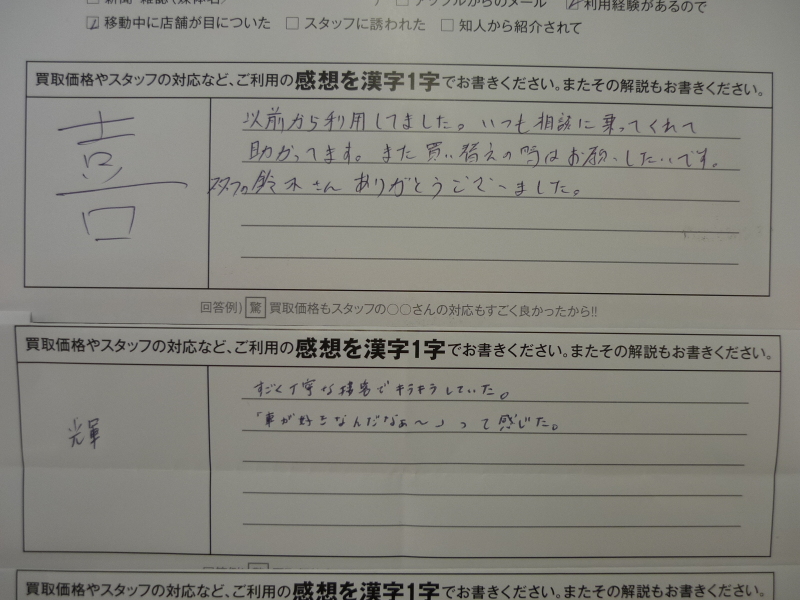 アップルからのメール 利用経験があるので
移動中に店舗が目についた スタッフに誘われた 知人から紹介されて
買取価格やスタッフの対応など、ご利用の感想を漢字1字でお書きください。またその解説もお書きください。
喜
以前から利用してました。いつも相談に乗ってくれて
助かってます。また買い替えの時はお願いしたいです。
スタッフの鈴木さんありがとうございました。
回答例) 驚 買取価格もスタッフの○○さんの対応もすごく良かったから!!
買取価格やスタッフの対応など、ご利用の感想を漢字1字でお書きください。またその解説もお書きください。
輝
すごく丁寧な接客でキラキラしていた。
「車が好きなんだなぁ〜」って感じた。
買取価格やスタッフの対応など、ご利用の感想を漢字1字でお書きください。またその解説もお書きください。